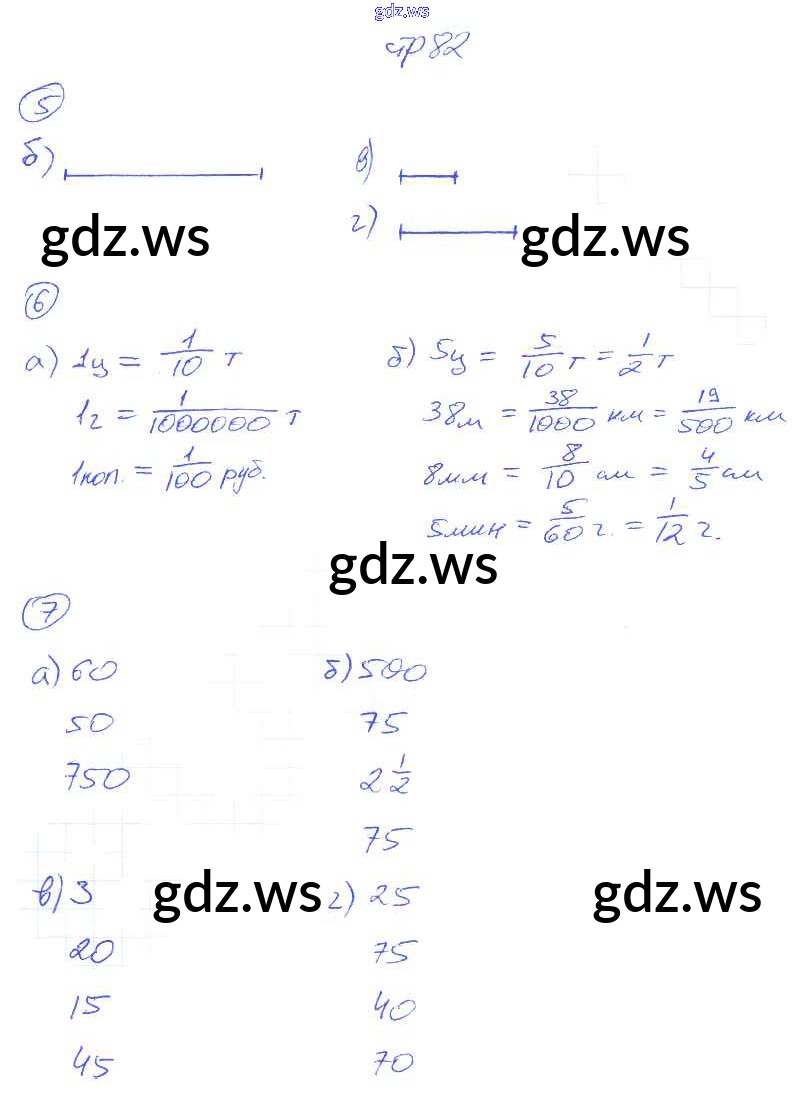 gdz.ws
стр 82
5
б)
в)
г)
gdz.ws gdz.ws
6
а) 1ц = 1/10 т
1г = 1/1000000 т
1коп. = 1/100 руб.
б) 5ц = 5/10 т = 1/2 т
38м = 38/1000 км = 19/500 км
8мм = 8/10 см = 4/5 см
5мин = 5/60 ч. = 1/12 ч.
gdz.ws
7
а) 60
50
750
б) 500
75
2 1/2
75
в) 3
20
15
45
gdz.ws gdz.ws
г) 25
75
40
70